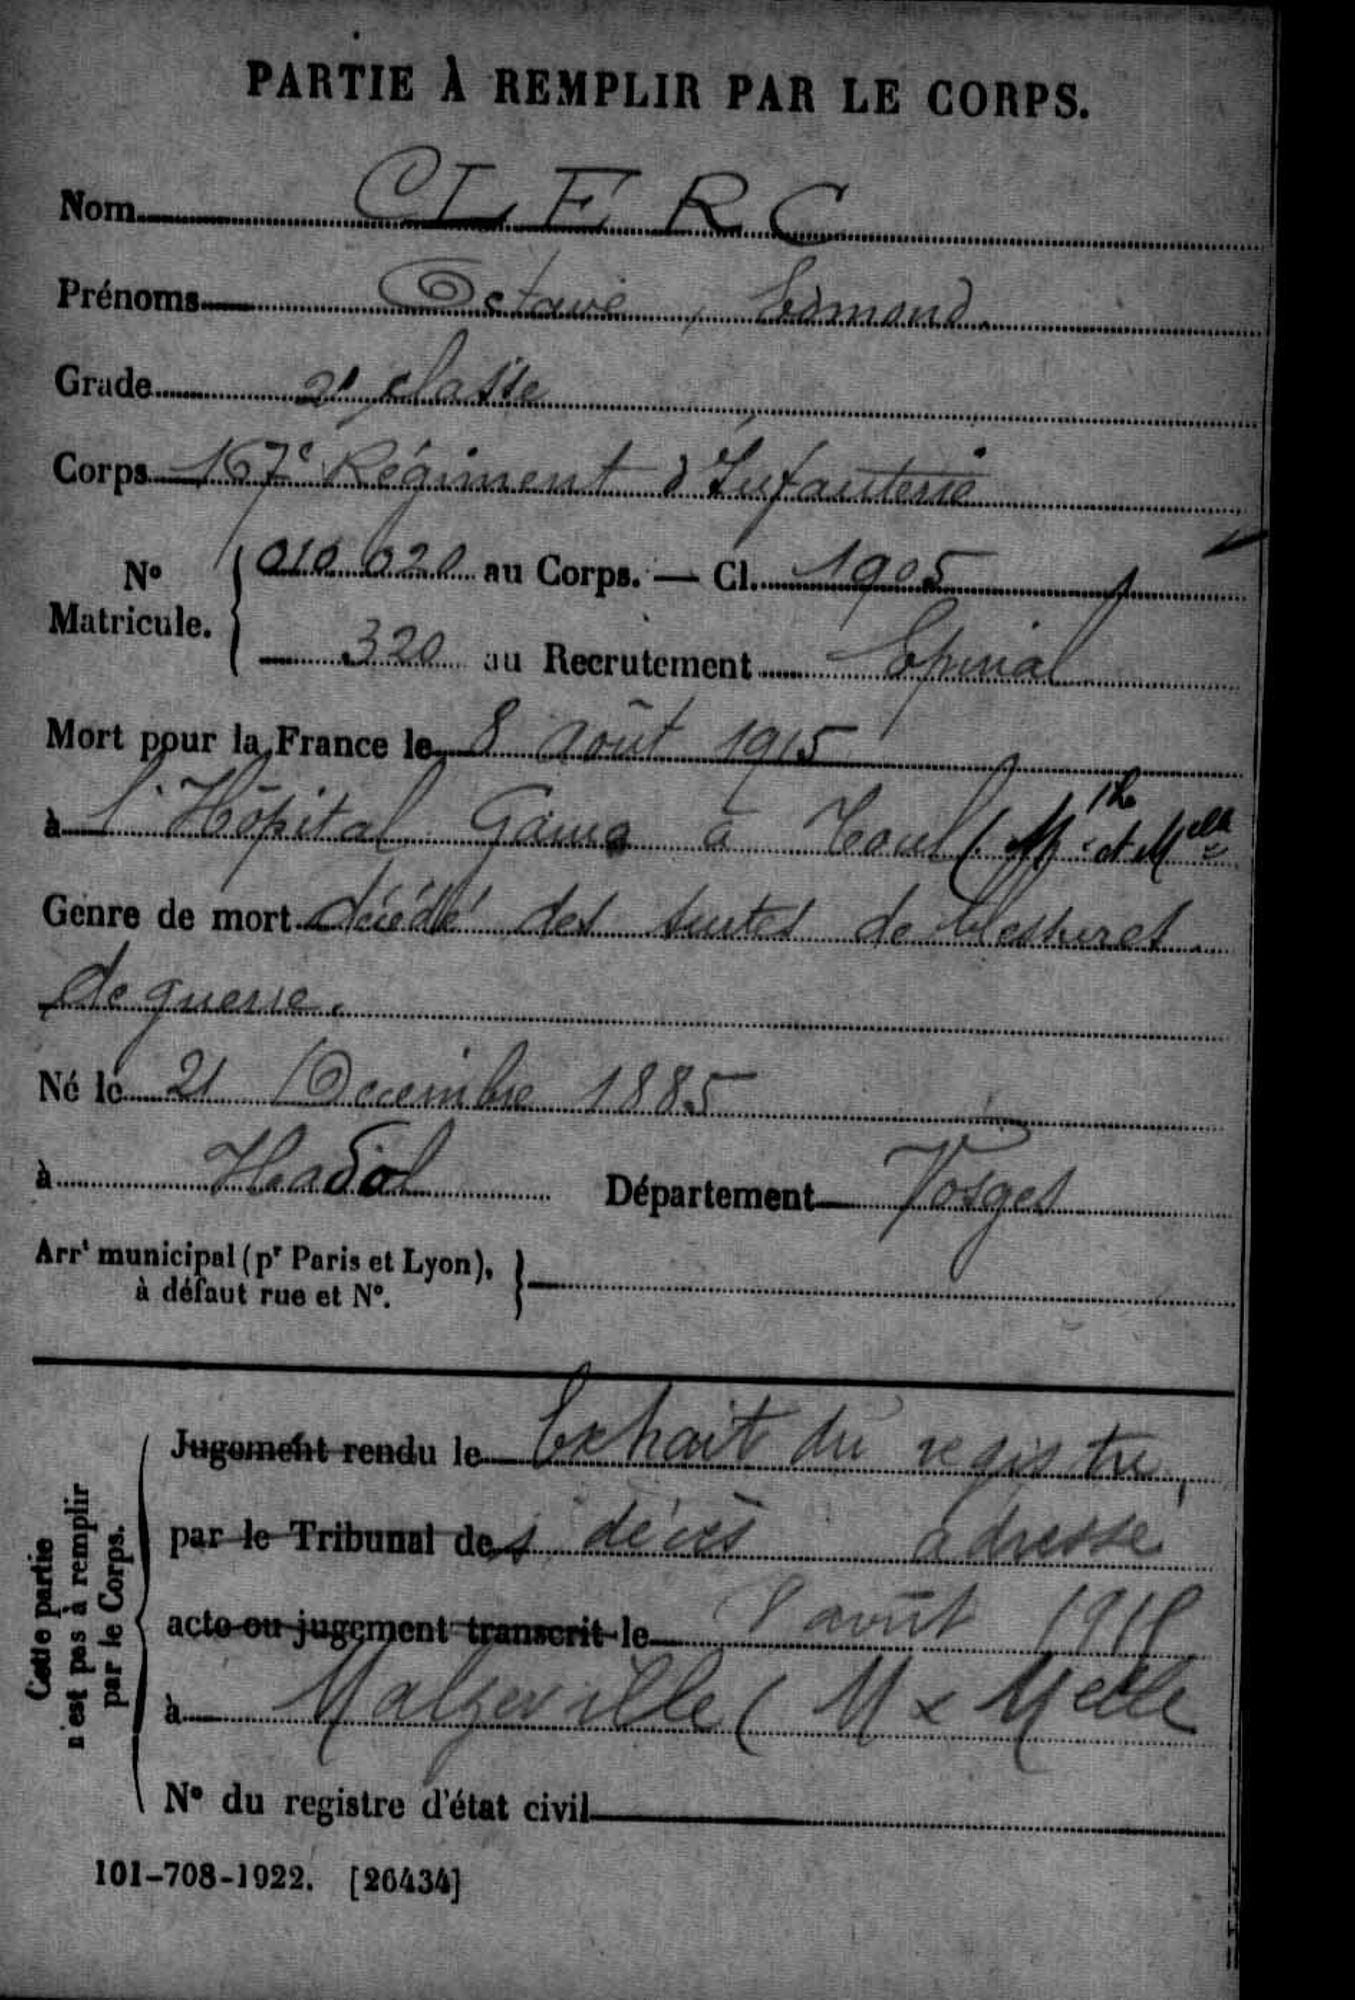 PARTIE À REMPLIR PAR LE CORPS.
Nom CLERC
Prénoms Octave, Edmond.
Grade 2e classe
Corps 167e Régiment d'Infanterie
No Matricule. 010 020 au Corps. — Cl. 1905
320 au Recrutement Epinal
Mort pour la France le 8 Août 1915
à l'Hôpital Gama à Toul (Mthe et Melle
Genre de mort décédé des suites de blessures
de guerre.
Né le 21 Décembre 1885
à Hadol Département Vosges
Arrt municipal (pr Paris et Lyon),
à défaut rue et No.
Cette partie
n'est pas à remplir
par le Corps.
Jugement rendu le Extrait du registre
par le Tribunal des décès adressé
acte ou jugement transcrit le 8 août 1915
à Malzeville (M & Melle
No du registre d'état civil
101-708-1922. [26434]